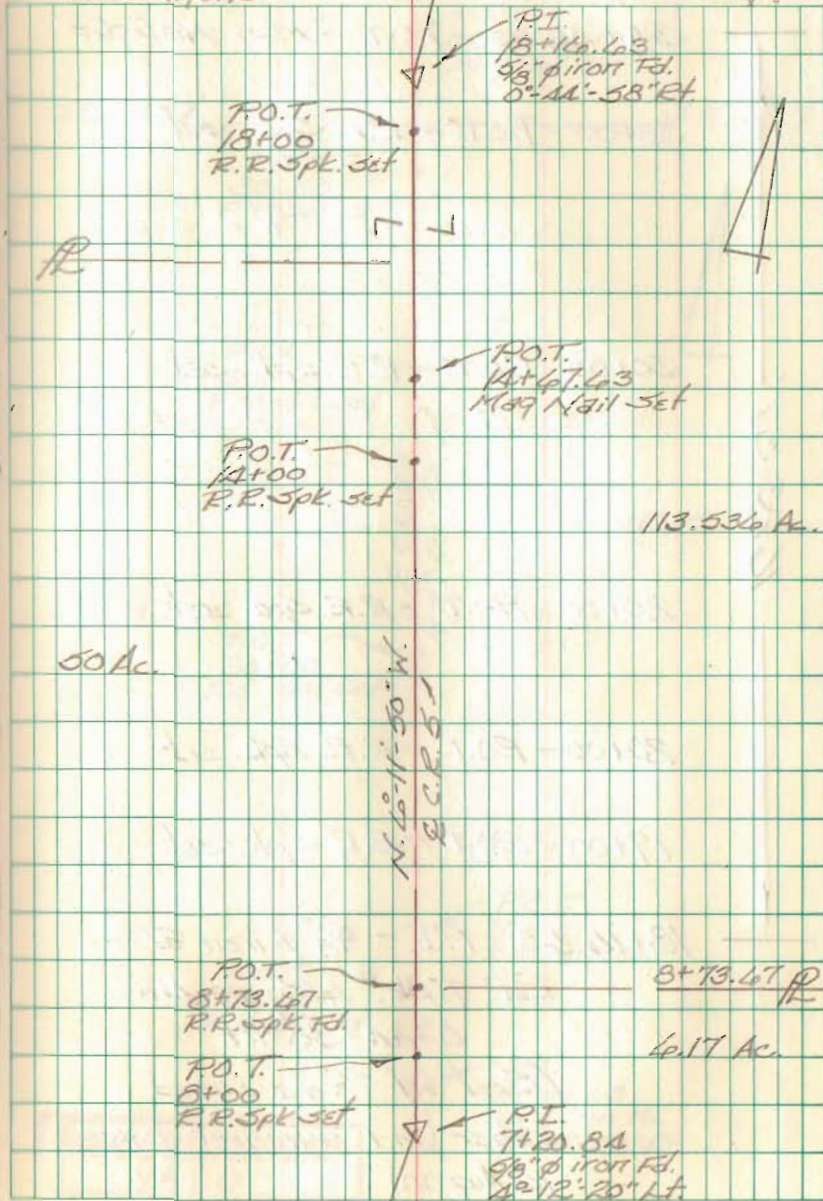 P.I.
18+16.63
5/8" φ iron Fd.
0°-44'-58" Rt.
P.O.T.
18+00
R.R. Spk. Set
7
L
PL
P.O.T.
14+67.63
Mag Nail Set
P.O.T.
14+00
R.R. Spk. set
113.536 Ac.
50 Ac.
N. 6°-11'-50" W.
℄ C.R. 5
P.O.T.
8+73.67
R.R. Spk. Fd.
8+73.67 PL
6.17 Ac.
P.O.T.
8+00
R.R. Spk set
P.I.
7+20.84
5/8" φ iron Fd.
4°-12'-20" Lt